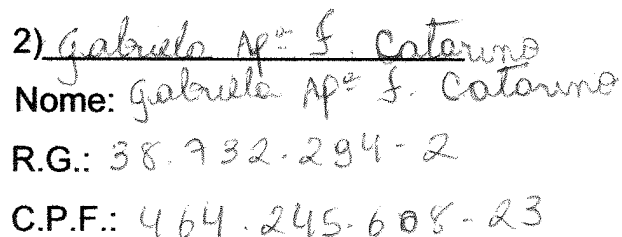 2) Gabriela Apª F. Catarino
Nome: Gabriela Apª F. Catarino
R.G.: 38.732.294-2
C.P.F.: 464.245.608-23